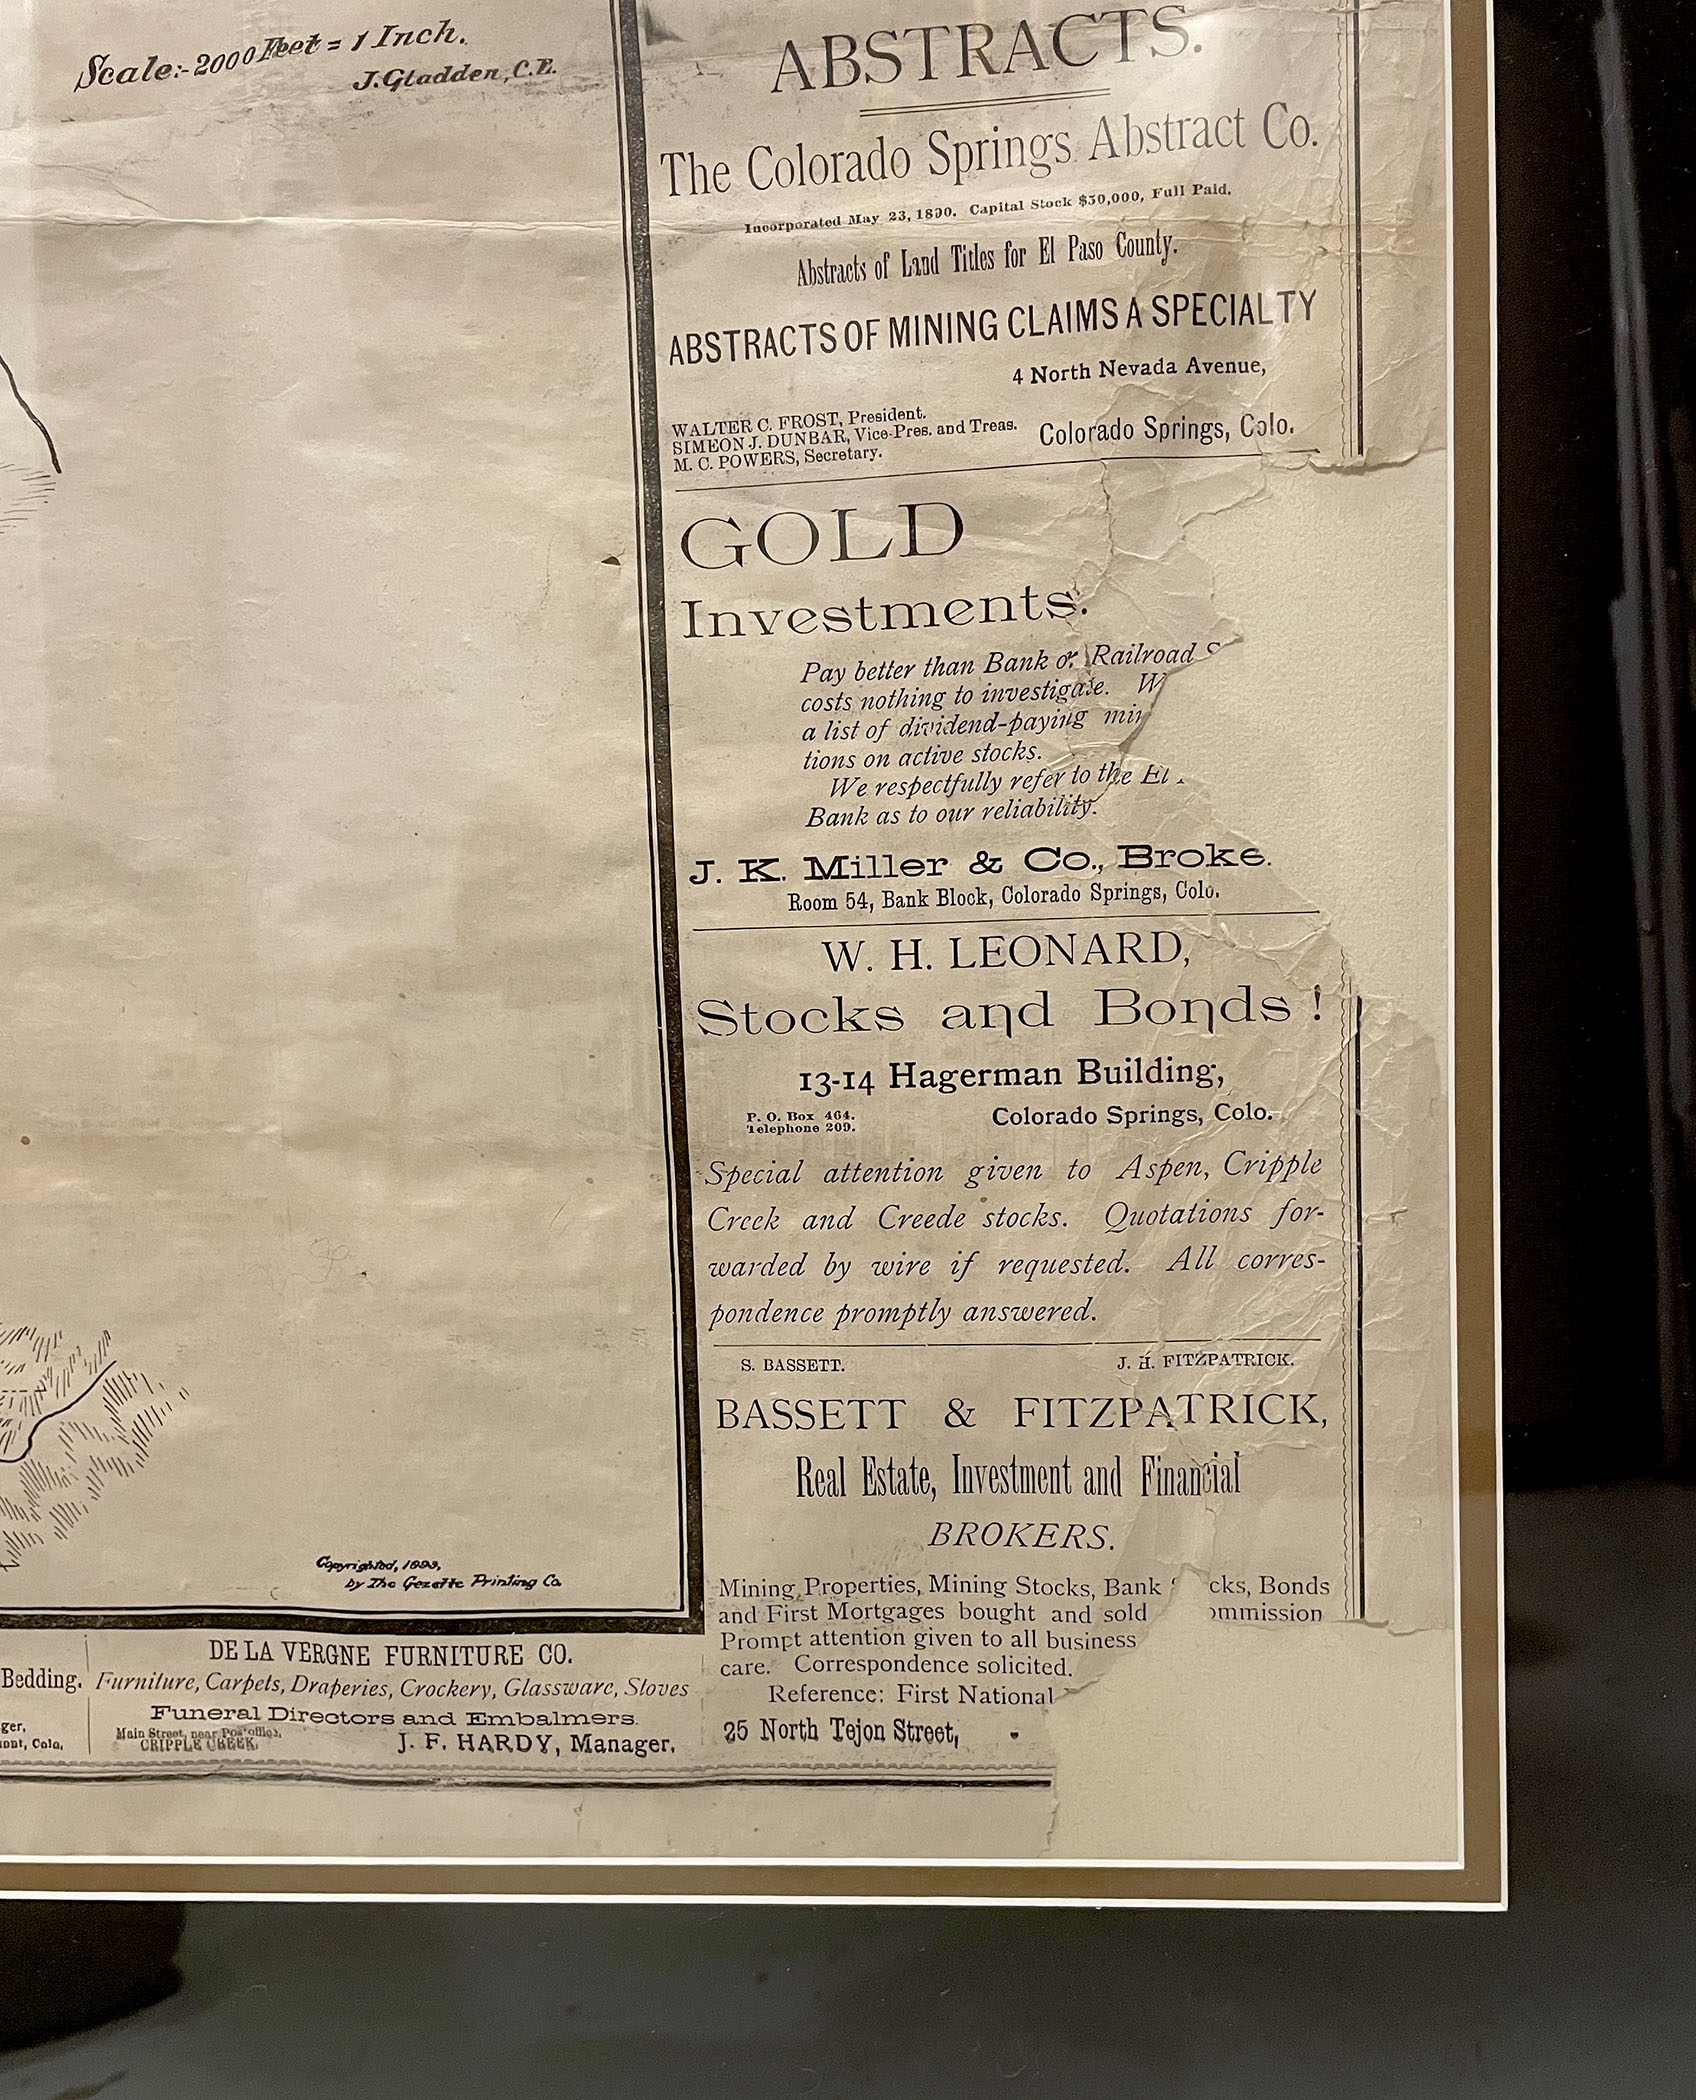 Scale:- 2000 Feet = 1 Inch.
J. Gladden, C.E.
ABSTRACTS.
The Colorado Springs Abstract Co.
Incorporated May 23, 1890. Capital Stock $50,000, Full Paid.
Abstracts of Land Titles for El Paso County.
ABSTRACTS OF MINING CLAIMS A SPECIALTY
4 North Nevada Avenue,
WALTER C. FROST, President.
SIMEON J. DUNBAR, Vice-Pres. and Treas.
M. C. POWERS, Secretary.
Colorado Springs, Colo.
GOLD
Investments.
Pay better than Bank or Railroad S
costs nothing to investigate. W
a list of dividend-paying min
tions on active stocks.
We respectfully refer to the El
Bank as to our reliability.
J. K. Miller & Co., Broke
Room 54, Bank Block, Colorado Springs, Colo.
W. H. LEONARD,
Stocks and Bonds !
13-14 Hagerman Building,
P. O. Box 464.
Telephone 209.
Colorado Springs, Colo.
Special attention given to Aspen, Cripple
Creek and Creede stocks. Quotations for-
warded by wire if requested. All corres-
pondence promptly answered.
S. BASSETT. J. H. FITZPATRICK.
BASSETT & FITZPATRICK,
Real Estate, Investment and Financial
BROKERS.
Mining Properties, Mining Stocks, Bank cks, Bonds
and First Mortgages bought and sold ommission
Prompt attention given to all business
care. Correspondence solicited.
Reference: First National
25 North Tejon Street,
Copyrighted, 1893,
by The Gazette Printing Co
Bedding.
ger,
ont, Colo.
DE LA VERGNE FURNITURE CO.
Furniture, Carpets, Draperies, Crockery, Glassware, Stoves
Funeral Directors and Embalmers.
Main Street, near Postoffice,
CRIPPLE CREEK.
J. F. HARDY, Manager.